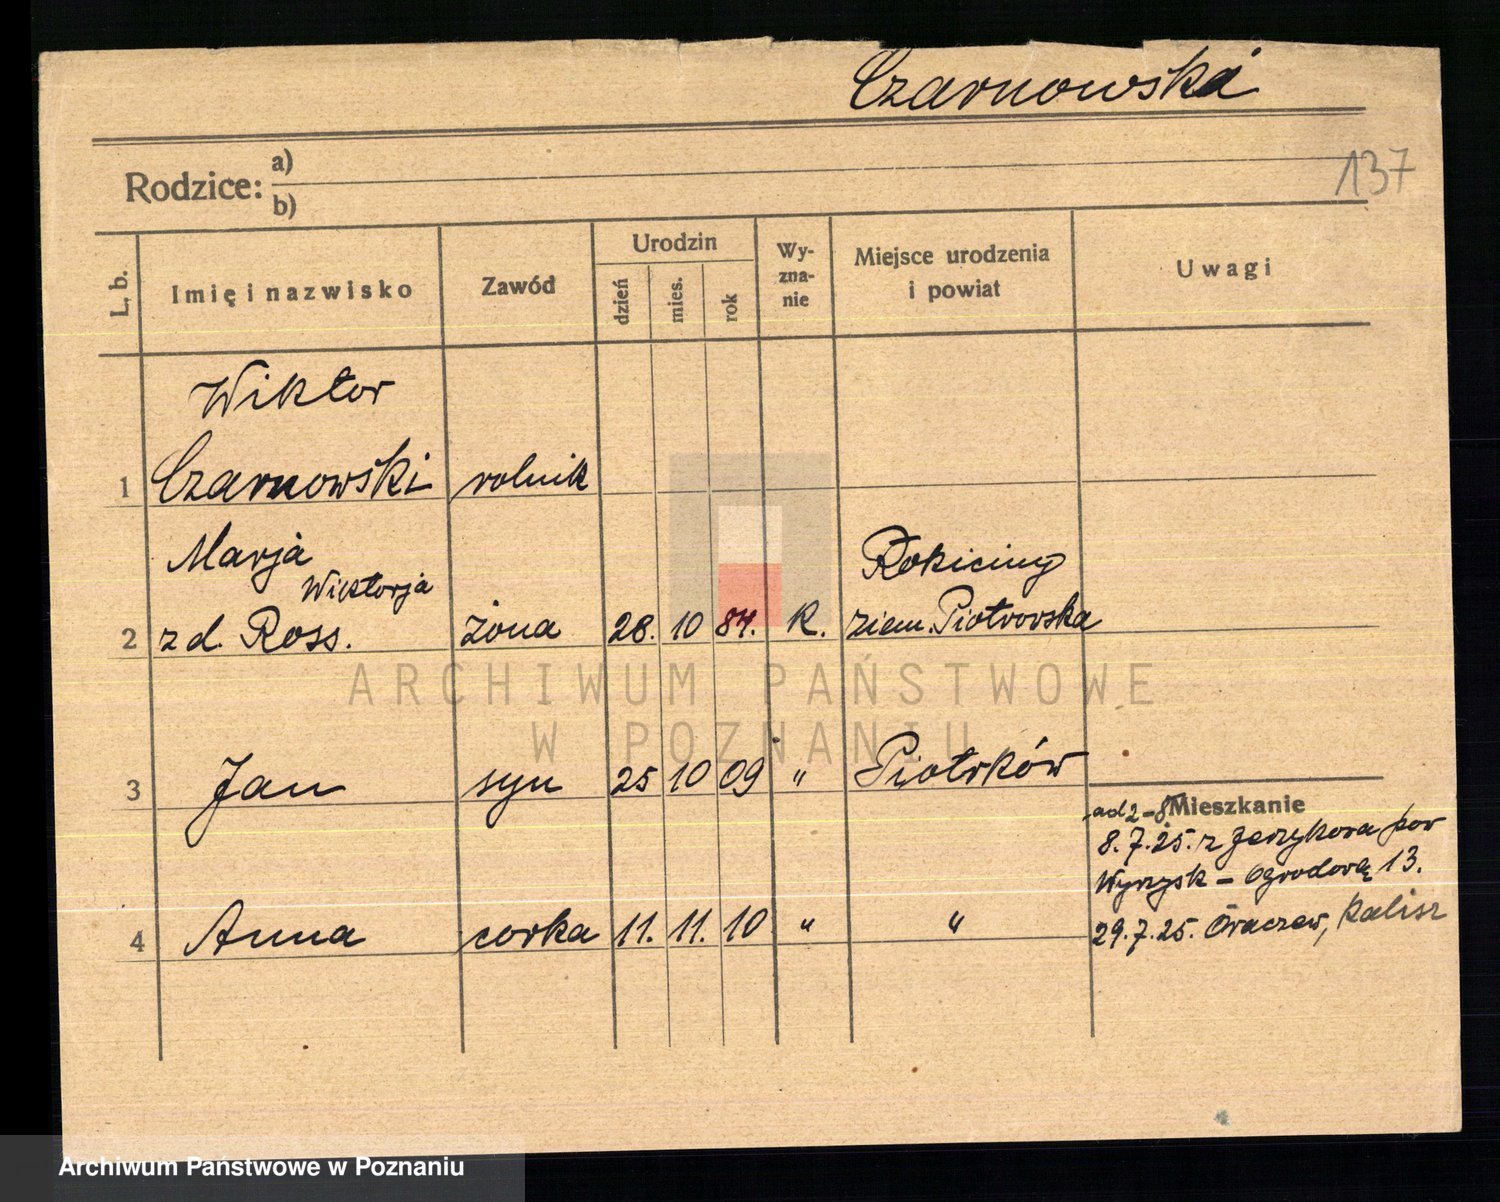 Czarnowska
137
Rodzice: a)
b)
L. b.
Imię i nazwisko
Zawód
Urodzin
dzień
mies.
rok
Wy-
zna-
nie
Miejsce urodzenia
i powiat
Uwagi
Wiktor
1 Czarnowski rolnik
Marja
Wiktorja
Rokiciny
2 z d. Ross. żona 28. 10 84. K. ziem. Piotrowska
3 Jan syn 25 10 09 " Piotrków
Mieszkanie
ad 2-8
8.7.25. z Jerzykowa pow
Wyrzysk - Ogrodową 13.
4 Anna corka 11. 11. 10 " "
29.7.25. Oraczew, Kalisz
ARCHIWUM PAŃSTWOWE
W POZNANIU
Archiwum Państwowe w Poznaniu